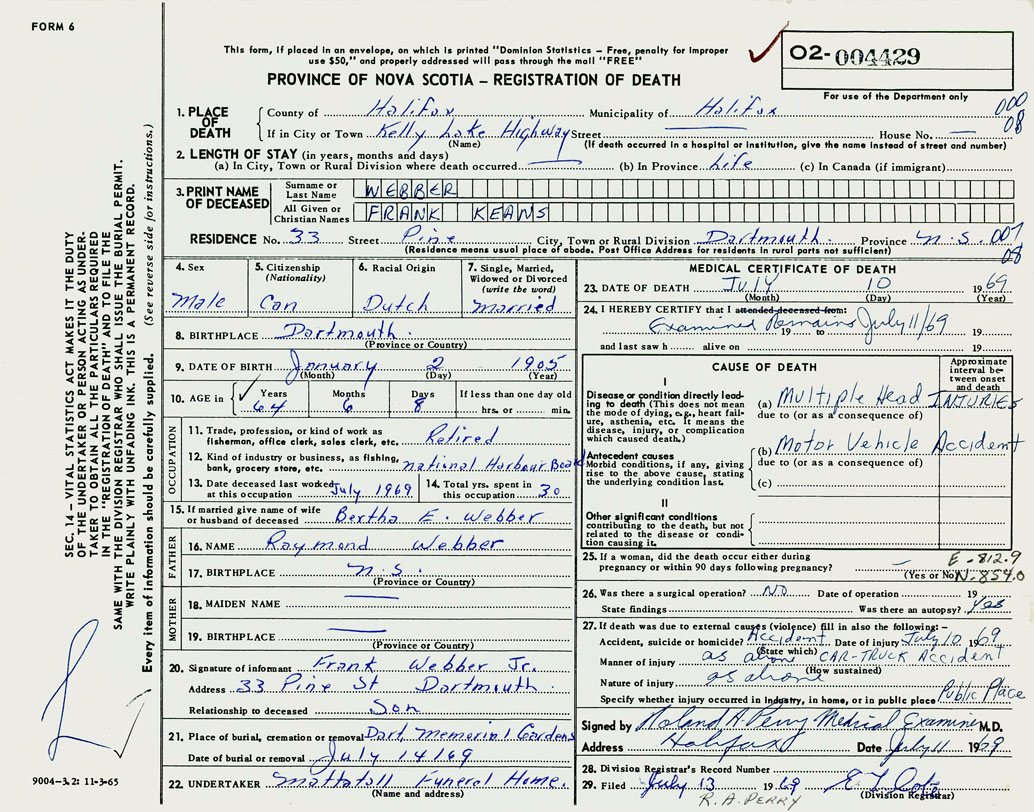 FORM 6
This form, if placed in an envelope, on which is printed "Dominion Statistics – Free, penalty for improper
use $50," and properly addressed will pass through the mail "FREE"
PROVINCE OF NOVA SCOTIA – REGISTRATION OF DEATH
O2-004429
For use of the Department only
000
08
1. PLACE OF DEATH
County of Halifax Municipality of Halifax
If in City or Town Kelly Lake Highway Street — House No. —
(Name) (If death occurred in a hospital or institution, give the name instead of street and number)
2. LENGTH OF STAY (in years, months and days)
(a) In City, Town or Rural Division where death occurred — (b) In Province Life (c) In Canada (if immigrant)
3. PRINT NAME OF DECEASED
Surname or Last Name WEBBER
All Given or Christian Names FRANK KEANS
RESIDENCE No. 33 Street Pine City, Town or Rural Division Dartmouth. Province N.S. 007
08
(Residence means usual place of abode. Post Office Address for residents in rural parts not sufficient)
4. Sex Male
5. Citizenship (Nationality) Can
6. Racial Origin Dutch
7. Single, Married, Widowed or Divorced (write the word) Married
8. BIRTHPLACE Dartmouth.
(Province or Country)
9. DATE OF BIRTH January 2 1905
(Month) (Day) (Year)
10. AGE in Years 64 Months 6 Days 8 If less than one day old hrs. or min.
OCCUPATION
11. Trade, profession, or kind of work as fisherman, office clerk, sales clerk, etc. Retired
12. Kind of industry or business, as fishing, bank, grocery store, etc. National Harbour Board
13. Date deceased last worked at this occupation July 1969
14. Total yrs. spent in this occupation 30
15. If married give name of wife or husband of deceased Bertha E. Webber
FATHER
16. NAME Raymond Webber
17. BIRTHPLACE N.S.
(Province or Country)
MOTHER
18. MAIDEN NAME —
19. BIRTHPLACE —
(Province or Country)
20. Signature of informant Frank Webber Jr.
Address 33 Pine St Dartmouth
Relationship to deceased Son
21. Place of burial, cremation or removal Dart. Memorial Gardens
Date of burial or removal July 14/69
22. UNDERTAKER Mattatall Funeral Home.
(Name and address)
MEDICAL CERTIFICATE OF DEATH
23. DATE OF DEATH July 10 1969
(Month) (Day) (Year)
24. I HEREBY CERTIFY that I attended deceased from:
Examined Remains July 11/69
19 to 19
and last saw h alive on 19
CAUSE OF DEATH
Approximate interval between onset and death
I
Disease or condition directly leading to death (This does not mean the mode of dying, e.g., heart failure, asthenia, etc. It means the disease, injury, or complication which caused death.)
(a) Multiple Head INJURIES
due to (or as a consequence of)
Antecedent causes
Morbid conditions, if any, giving rise to the above cause, stating the underlying condition last.
(b) Motor Vehicle Accident
due to (or as a consequence of)
(c)
II
Other significant conditions contributing to the death, but not related to the disease or condition causing it.
25. If a woman, did the death occur either during pregnancy or within 90 days following pregnancy? —
(Yes or No)
E-812.9
N-854.0
26. Was there a surgical operation? NO Date of operation 19
State findings Was there an autopsy? Yes
27. If death was due to external causes (violence) fill in also the following:–
Accident, suicide or homicide? Accident Date of injury July 10 1969
(State which)
Manner of injury as above CAR-TRUCK ACCIDENT
(How sustained)
Nature of injury as above
Specify whether injury occurred in industry, in home, or in public place Public Place
Signed by Roland A. Perry Medical Examiner M.D.
Address Halifax Date July 11 1969
28. Division Registrar's Record Number
29. Filed July 13 1969
(Division Registrar)
R. A. PERRY
SEC. 14 – VITAL STATISTICS ACT MAKES IT THE DUTY
OF THE UNDERTAKER OR PERSON ACTING AS UNDER-
TAKER TO OBTAIN ALL THE PARTICULARS REQUIRED
IN THE "REGISTRATION OF DEATH" AND TO FILE THE
SAME WITH THE DIVISION REGISTRAR WHO SHALL ISSUE THE BURIAL PERMIT.
WRITE PLAINLY WITH UNFADING INK. THIS IS A PERMANENT RECORD.
Every item of information should be carefully supplied. (See reverse side for instructions.)
9004-3.2: 11-3-65